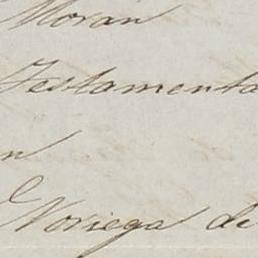 Moran
Testamenta
n
Noriega de